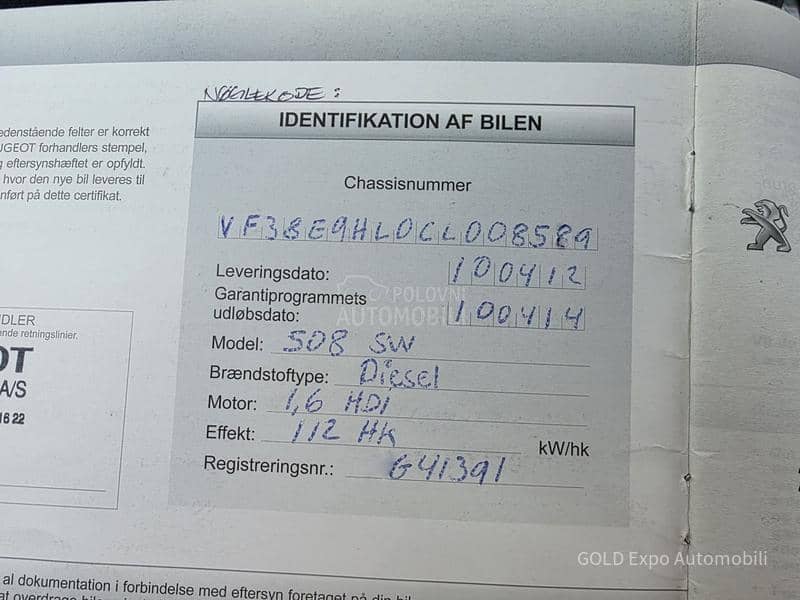 NØGLEKODE:
IDENTIFIKATION AF BILEN
edenstående felter er korrekt
UGEOT forhandlers stempel,
g eftersynshæftet er opfyldt.
hvor den nye bil leveres til
nført på dette certifikat.
Chassisnummer
VF38E9HL0CL008589
Leveringsdato: 100412
Garantiprogrammets
udløbsdato: 100414
POLOVNI
AUTOMOBILI
Model: 508 SW
Brændstoftype: Diesel
Motor: 1,6 HDI
Effekt: 112 HK kW/hk
Registreringsnr.: G41391
NDLER
ende retningslinier.
OT
A/S
16 22
GOLD Expo Automobili
al dokumentation i forbindelse med eftersyn foretaget på din bil
at overdrage